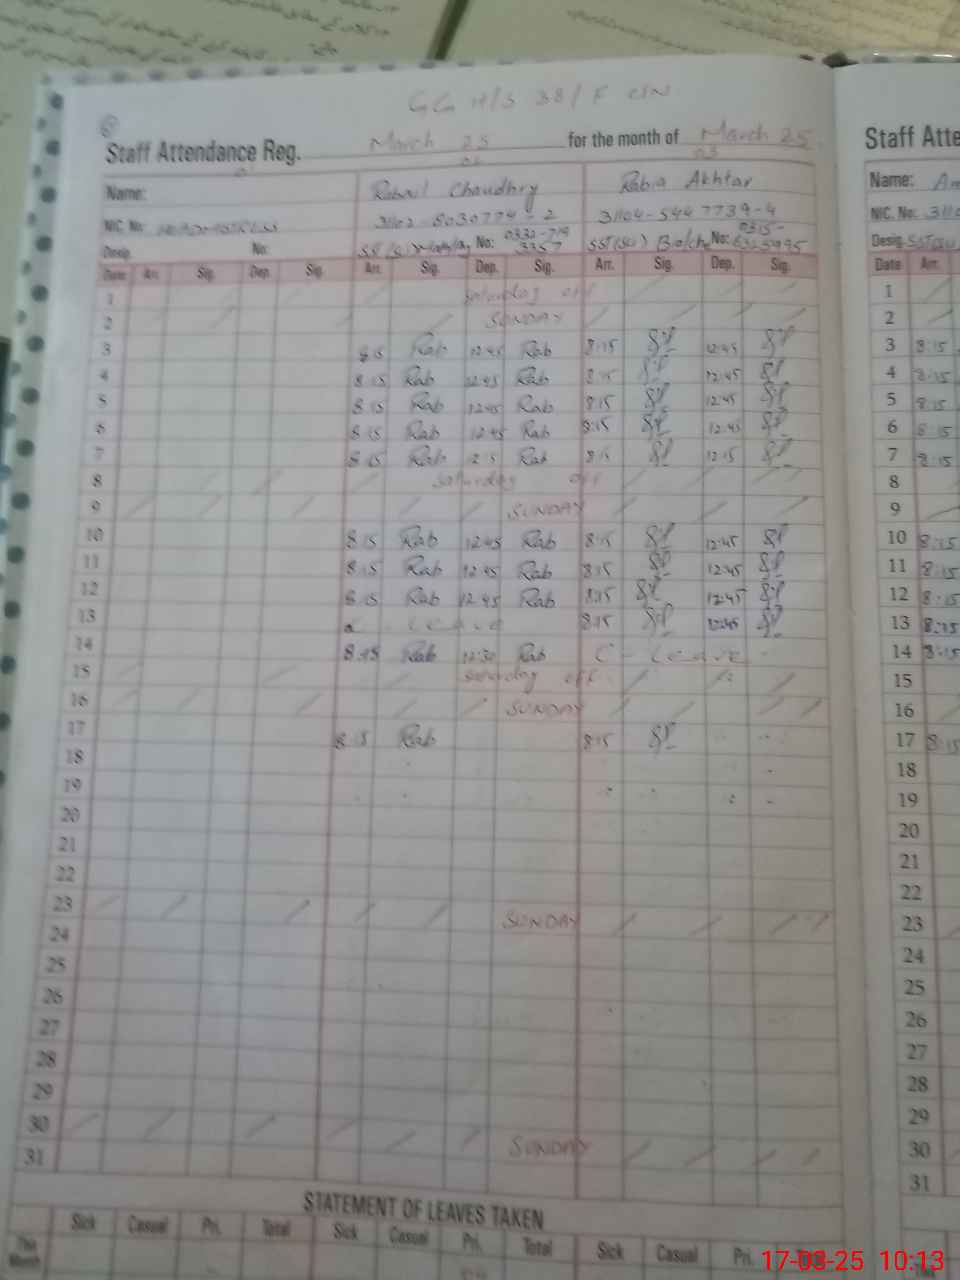 GG H/S 38/F CIN
Staff Attendance Reg. March 25 for the month of March 25
Staff Atte
01 02 03
Name: Rahail Chaudhry Rabia Akhtar
Name: Am
NIC. No: HEADMISTRESS 31102-8030774-2 31104-5447739-4
NIC. No: 3110
Desig. No: No: 0332-719 3357 SST(SC) No: 0315-
Desig. SST(SC)
Date Arr. Sig. Dep. Sig. Arr. Sig. Dep. Sig. Arr. Sig. Dep. Sig.
Date Arr.
1 Saturday off 1
2 SUNDAY 2
3 8:15 Rab 12:45 Rab 8:15 12:45 3 8:15
4 8:15 Rab 12:45 Rab 8:15 12:45 4 8:15
5 8:15 Rab 12:45 Rab 8:15 12:45 5 8:15
6 8:15 Rab 12:45 Rab 8:15 12:45 6 8:15
7 8:15 Rab 12:15 Rab 8:15 12:15 7 8:15
8 Saturday off 8
9 SUNDAY 9
10 8:15 Rab 12:45 Rab 8:15 12:45 10 8:15
11 8:15 Rab 12:45 Rab 8:15 12:45 11 8:15
12 8:15 Rab 12:45 Rab 8:15 12:45 12 8:15
13 Leave 8:15 12:45 13 8:15
14 8:15 Rab 12:30 Rab C-Leave 14 8:15
15 Saturday off 15
16 SUNDAY 16
17 8:15 Rab 8:15 17 8:15
18 18
19 19
20 20
21 21
22 22
23 SUNDAY 23
24 24
25 25
26 26
27 27
28 28
29 29
30 SUNDAY 30
31 31
STATEMENT OF LEAVES TAKEN
Sick Casual Pri. Total Sick Casual Pri. Total Sick Casual Pri. Total
This Month
17-03-25 10:13